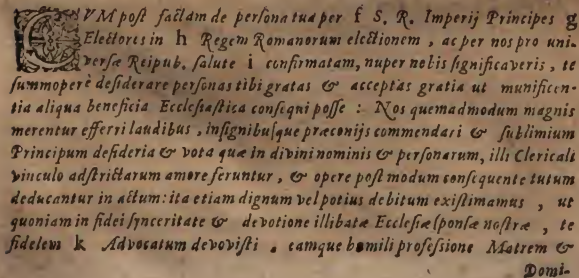 CVM post factam de persona tua per f S. R. Imperij Principes g
Electores in h Regem Romanorum electionem, ac per nos pro uni-
versæ Reipub. salute i confirmatam, nuper nobis significaveris, te
summoperè desiderare personas tibi gratas & acceptas gratia ut munificen-
tia aliqua beneficia Ecclesiastica consequi posse: Nos quemadmodum magnis
merentur efferri laudibus, insignibusque præconijs commendari & sublimium
Principum desideria & vota quæ in divini nominis & personarum, illi Clericali
vinculo adstrictarum amore feruntur, & opere post modum consequente tutum
deducantur in actum: ita etiam dignum vel potius debitum existimamus, ut
quoniam in fidei synceritate & devotione illibatæ Ecclesiæ sponsæ nostræ, te
fidelem k Advocatum devovisti, eamque humili professione Matrem &
Domi-